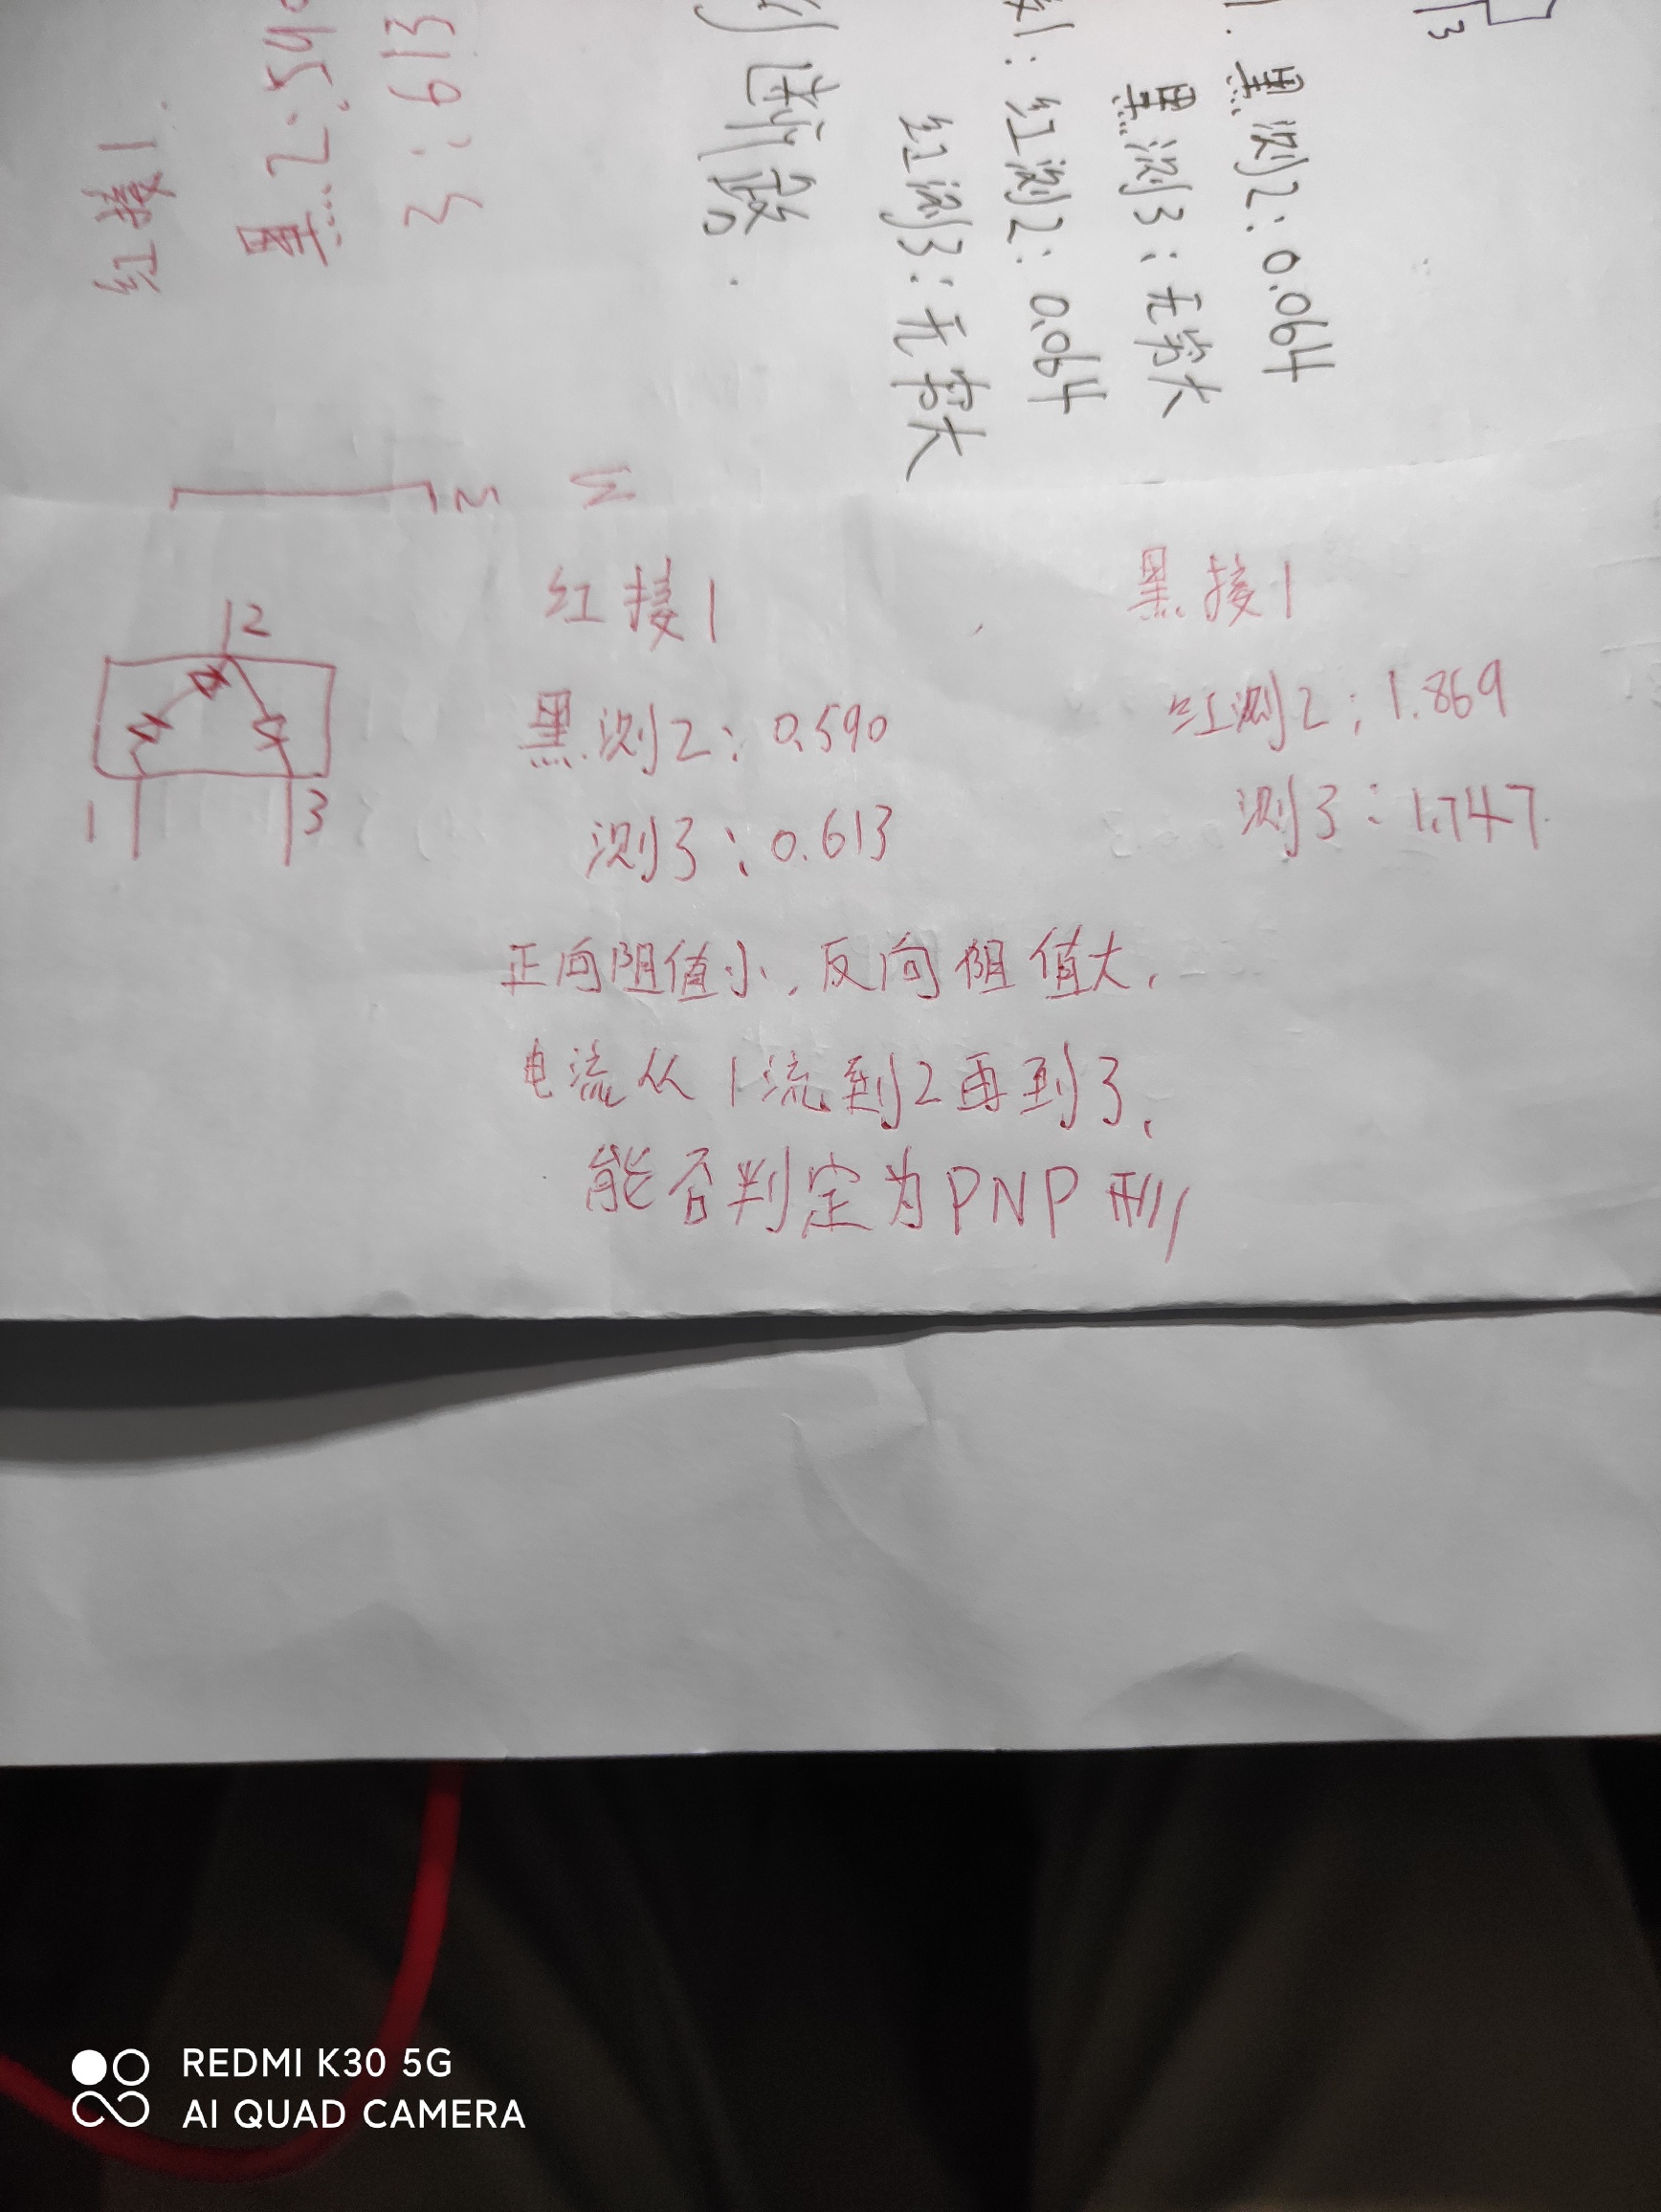 红接1
黑2:590
3:613
断路.
红测2:0.064
红测3:无穷大
黑测2:0.064
黑测3:无穷大
3
2
1
3
红接1
黑测2:0.590
测3:0.613
黑接1
红测2:1.869
测3:1.747
正向阻值小,反向阻值大,
电流从1流到2再到3,
能否判定为PNP型
REDMI K30 5G
AI QUAD CAMERA